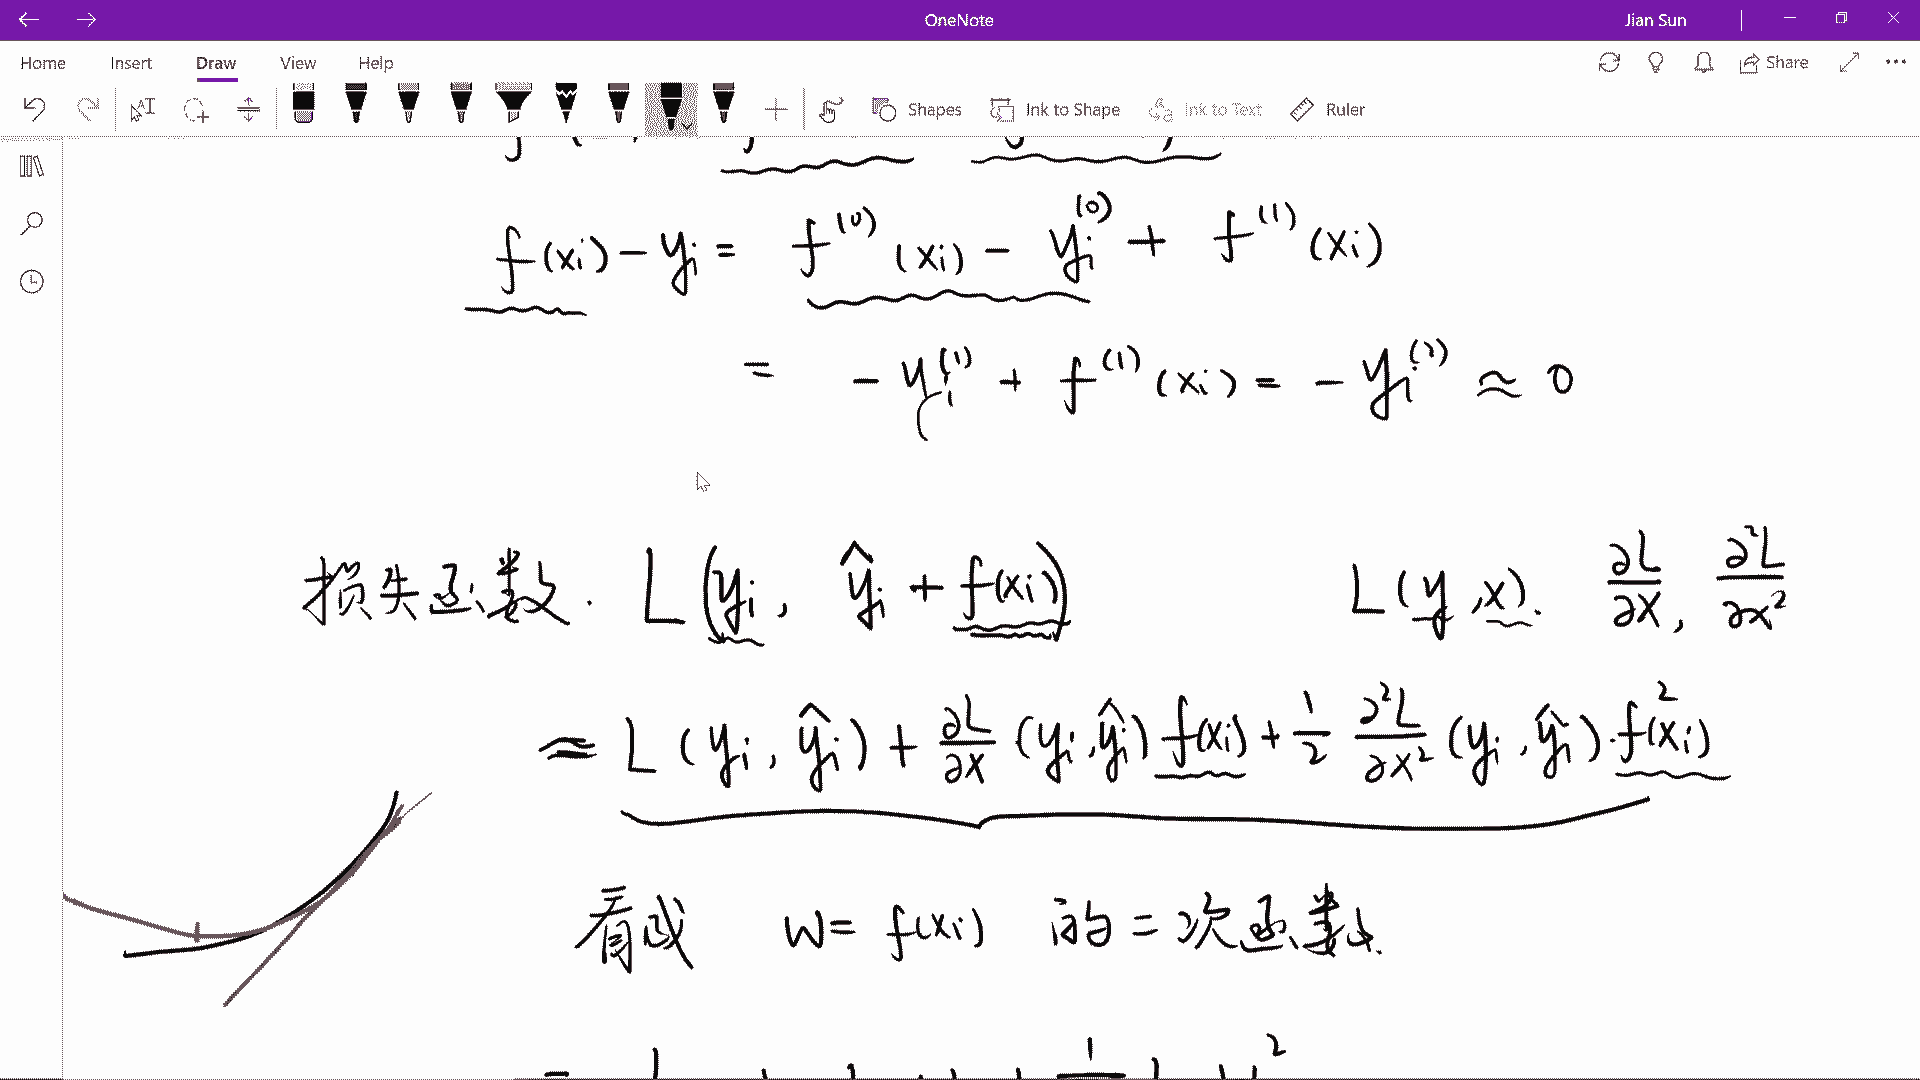 OneNote
Jian Sun
Home Insert Draw View Help Share
Shapes Ink to Shape Ink to Text Ruler
f(xi) - yi = f^(0)(xi) - yi^(0) + f^(1)(xi)
= - yi^(1) + f^(1)(xi) = - yi^(2) ≈ 0
损失函数. L(yi, ŷi + f(xi)) L(y,x). ∂L/∂x, ∂²L/∂x²
≈ L(yi, ŷi) + ∂L/∂x (yi, ŷi) f(xi) + 1/2 ∂²L/∂x² (yi, ŷi)·f²(xi)
看成 w = f(xi) 的二次函数.